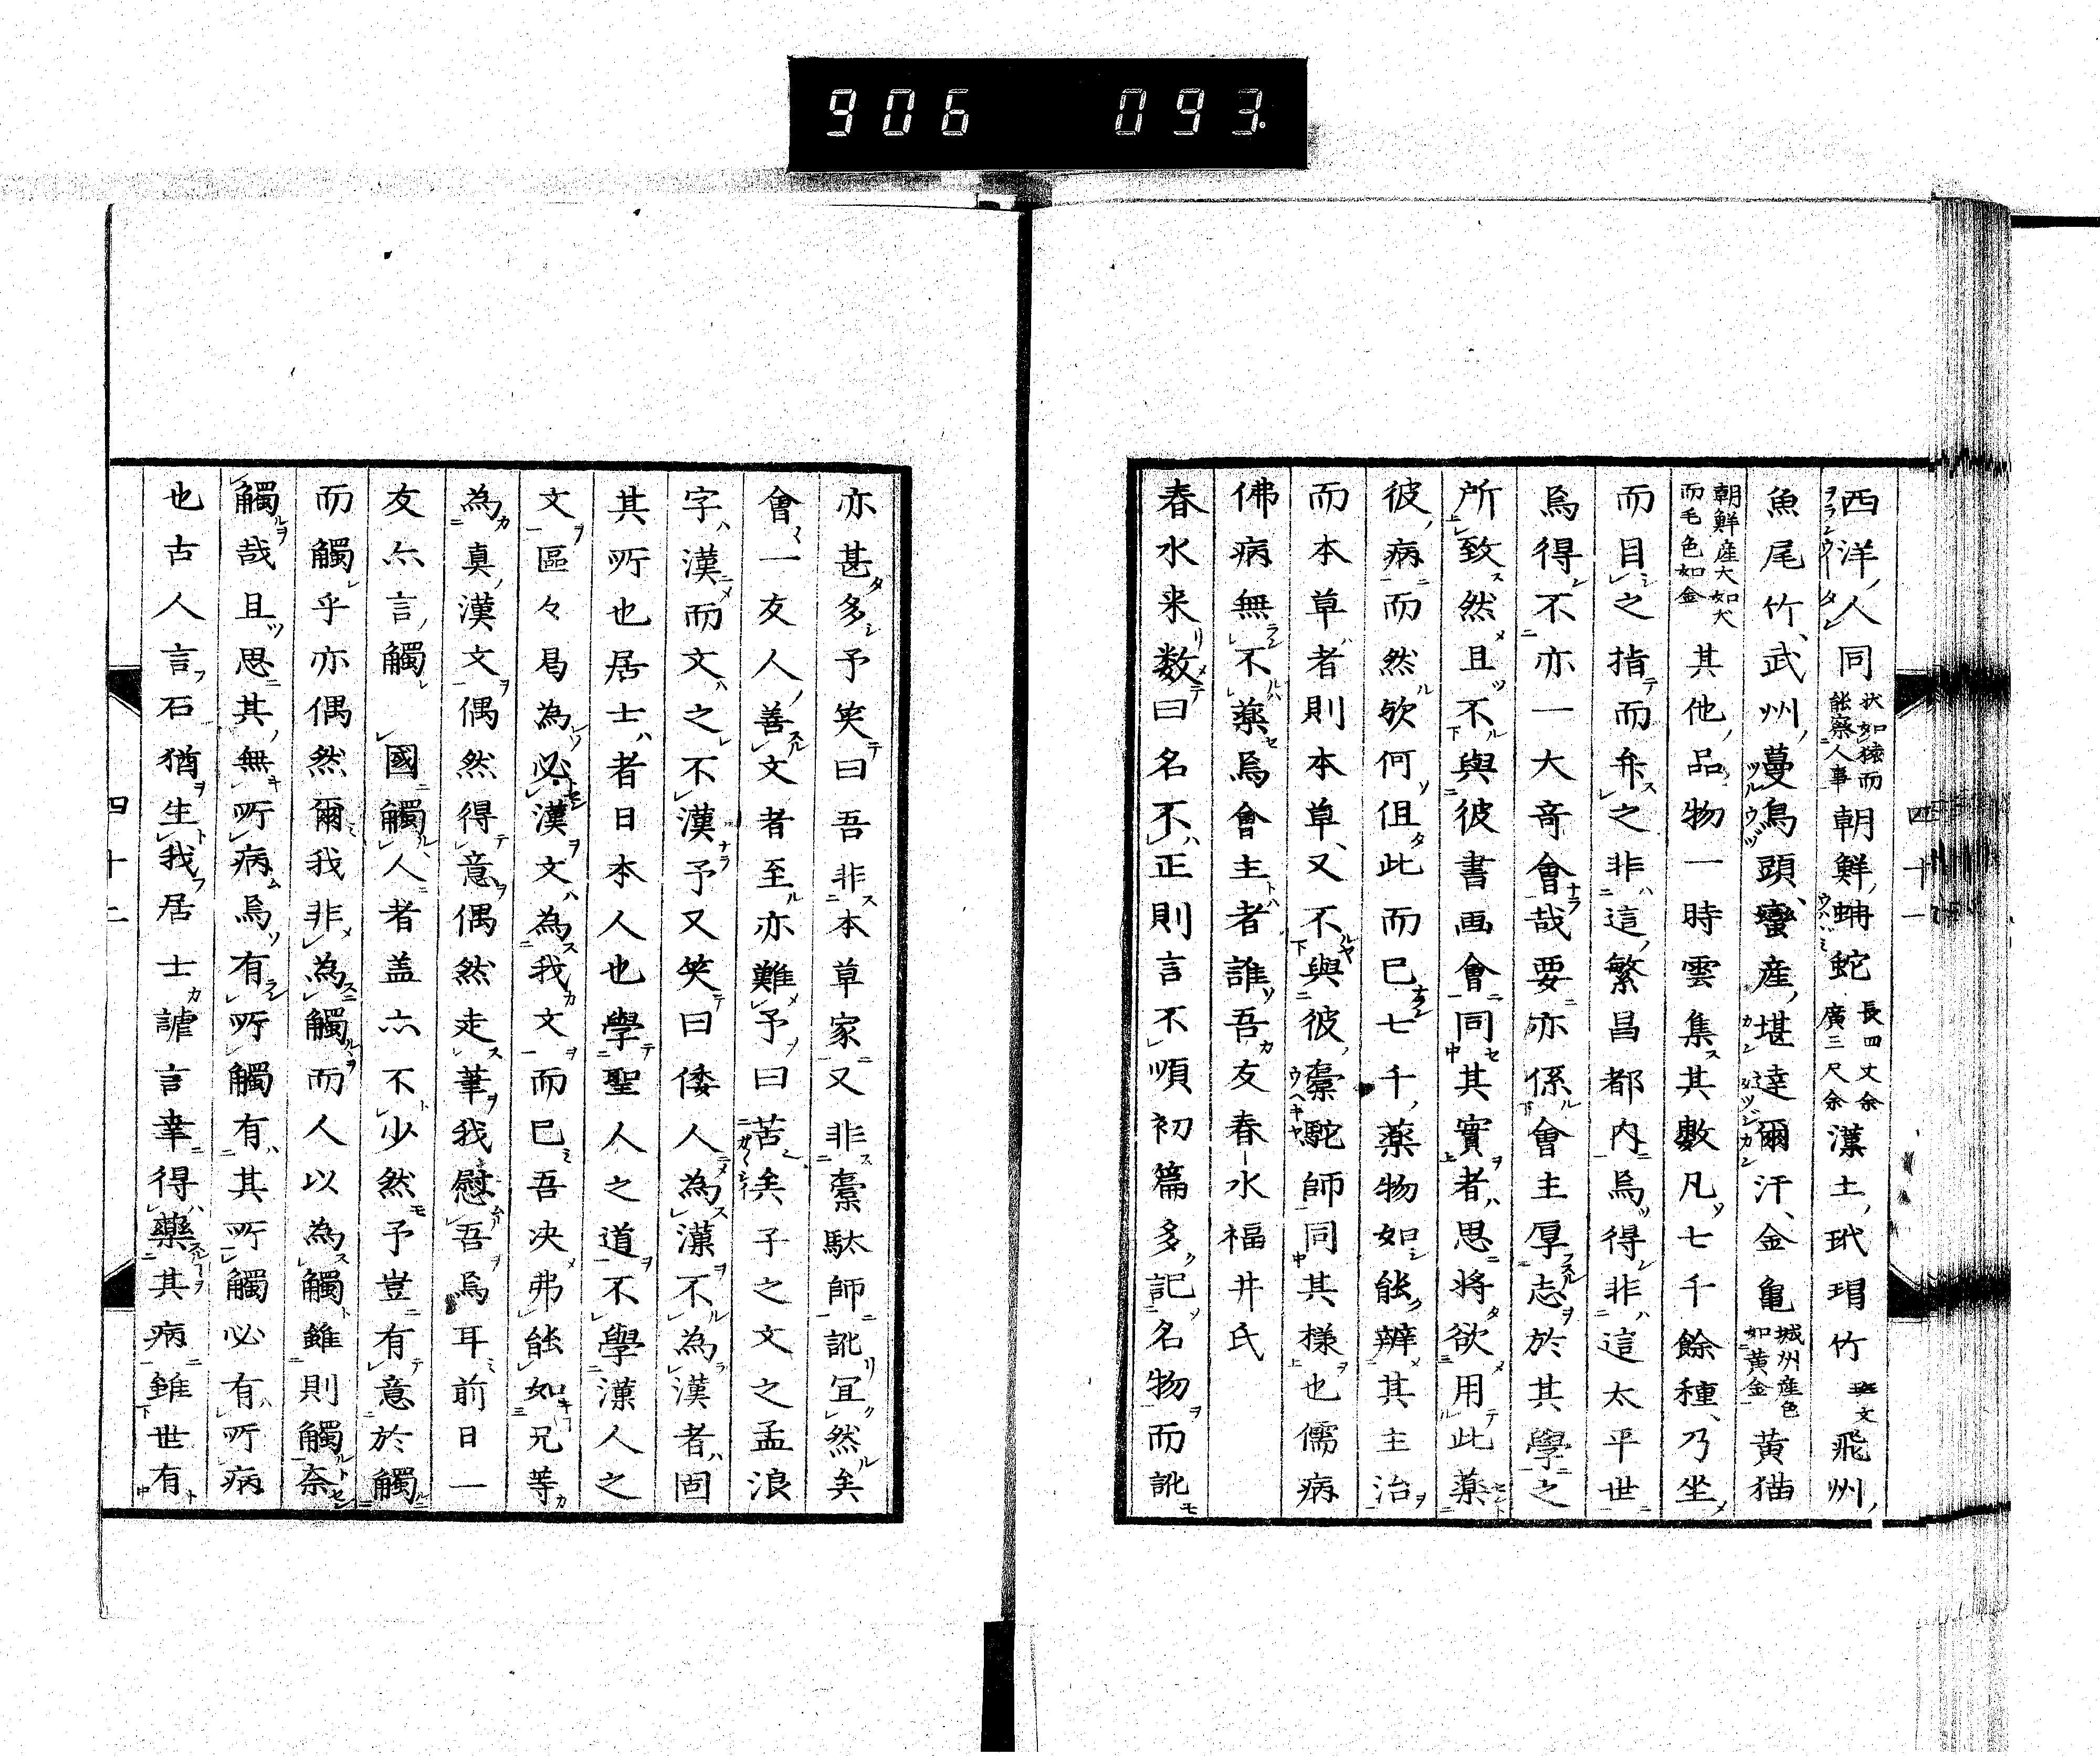 906 093
西洋人同狀如猿而能察人事朝鮮蚺蛇長四丈余廣三尺余漢土玳瑁竹斑文飛州
魚尾竹武州蔓烏頭蠻産堪達爾汗金龜城州産色如黃金黃猫
朝鮮産大如犬而毛色如金其他品物一時雲集其數凡七千餘種乃坐
而目之指而弁之非這繁昌都内烏得非這太平世
烏得不亦一大奇會哉要亦係會主厚志於其學之
所致然且不與彼書画會同其實者思將欲用此藥
彼病而然欤何但此而已七千藥物如能辨其主治
而本草者則本草又不與彼橐駝師同其樣也儒病
佛病無不藥烏會主者誰吾友春水福井氏
春水来数曰名不正則言不順初篇多記名物而訛
四十一
亦甚多予笑曰吾非本草家又非橐駄師訛冝然矣
會一友人善文者至亦難予曰苦矣子之文之孟浪
字漢而文之不漢予又笑曰倭人為漢不為漢者固
其所也居士者日本人也學聖人之道不學漢人之
文區々曷為必漢文為我文而已吾决弗能如兄等
為真漢文偶然得意偶然走筆我慰吾烏耳前日一
友亦言觸國觸人者盖亦不少然予豈有意於觸
而觸乎亦偶然爾我非為觸而人以為觸雖則觸奈
觸哉且思其無所病烏有所觸有其所觸必有所病
也古人言石猶生我居士謔言幸得藥其病雖世有
四十二